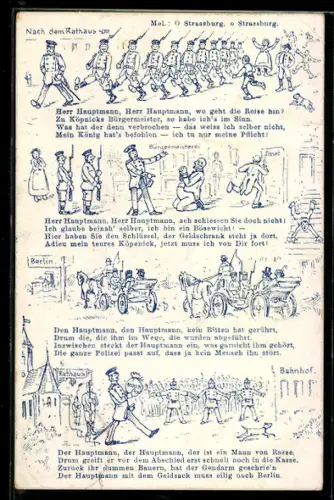 Mel.: O Strassburg, o Strassburg.
Nach dem Rathaus
Herr Hauptmann, Herr Hauptmann, wo geht die Reise hin?
Zu Köpnicks Bürgermeister, so habe ich's im Sinn.
Was hat der denn verbrochen — das weiss ich selber nicht,
Mein König hat's befohlen — ich tu nur meine Pflicht!
Bürgermeisterei
Herr Hauptmann, Herr Hauptmann, ach schiessen Sie doch nicht!
Ich glaube beinah' selber, ich bin ein Bösewicht! —
Hier haben Sie den Schlüssel, der Geldschrank steht ja dort,
Adieu mein teures Köpenick, jetzt muss ich von Dir fort!
Berlin.
Den Hauptmann, den Hauptmann, kein Bitten hat gerührt,
Drum die, die ihm im Wege, die wurden abgeführt.
Inzwischen steckt der Hauptmann ein, was garnicht ihm gehört,
Die ganze Polizei passt auf, dass ja kein Mensch ihn stört.
Rathaus
Bahnhof.
Der Hauptmann, der Hauptmann, der ist ein Mann von Rasse,
Drum greift er vor dem Abschied erst schnell noch in die Kasse.
Zurück ihr dummen Bauern, hat der Gendarm geschrie'n
Der Hauptmann mit dem Geldsack muss eilig nach Berlin.